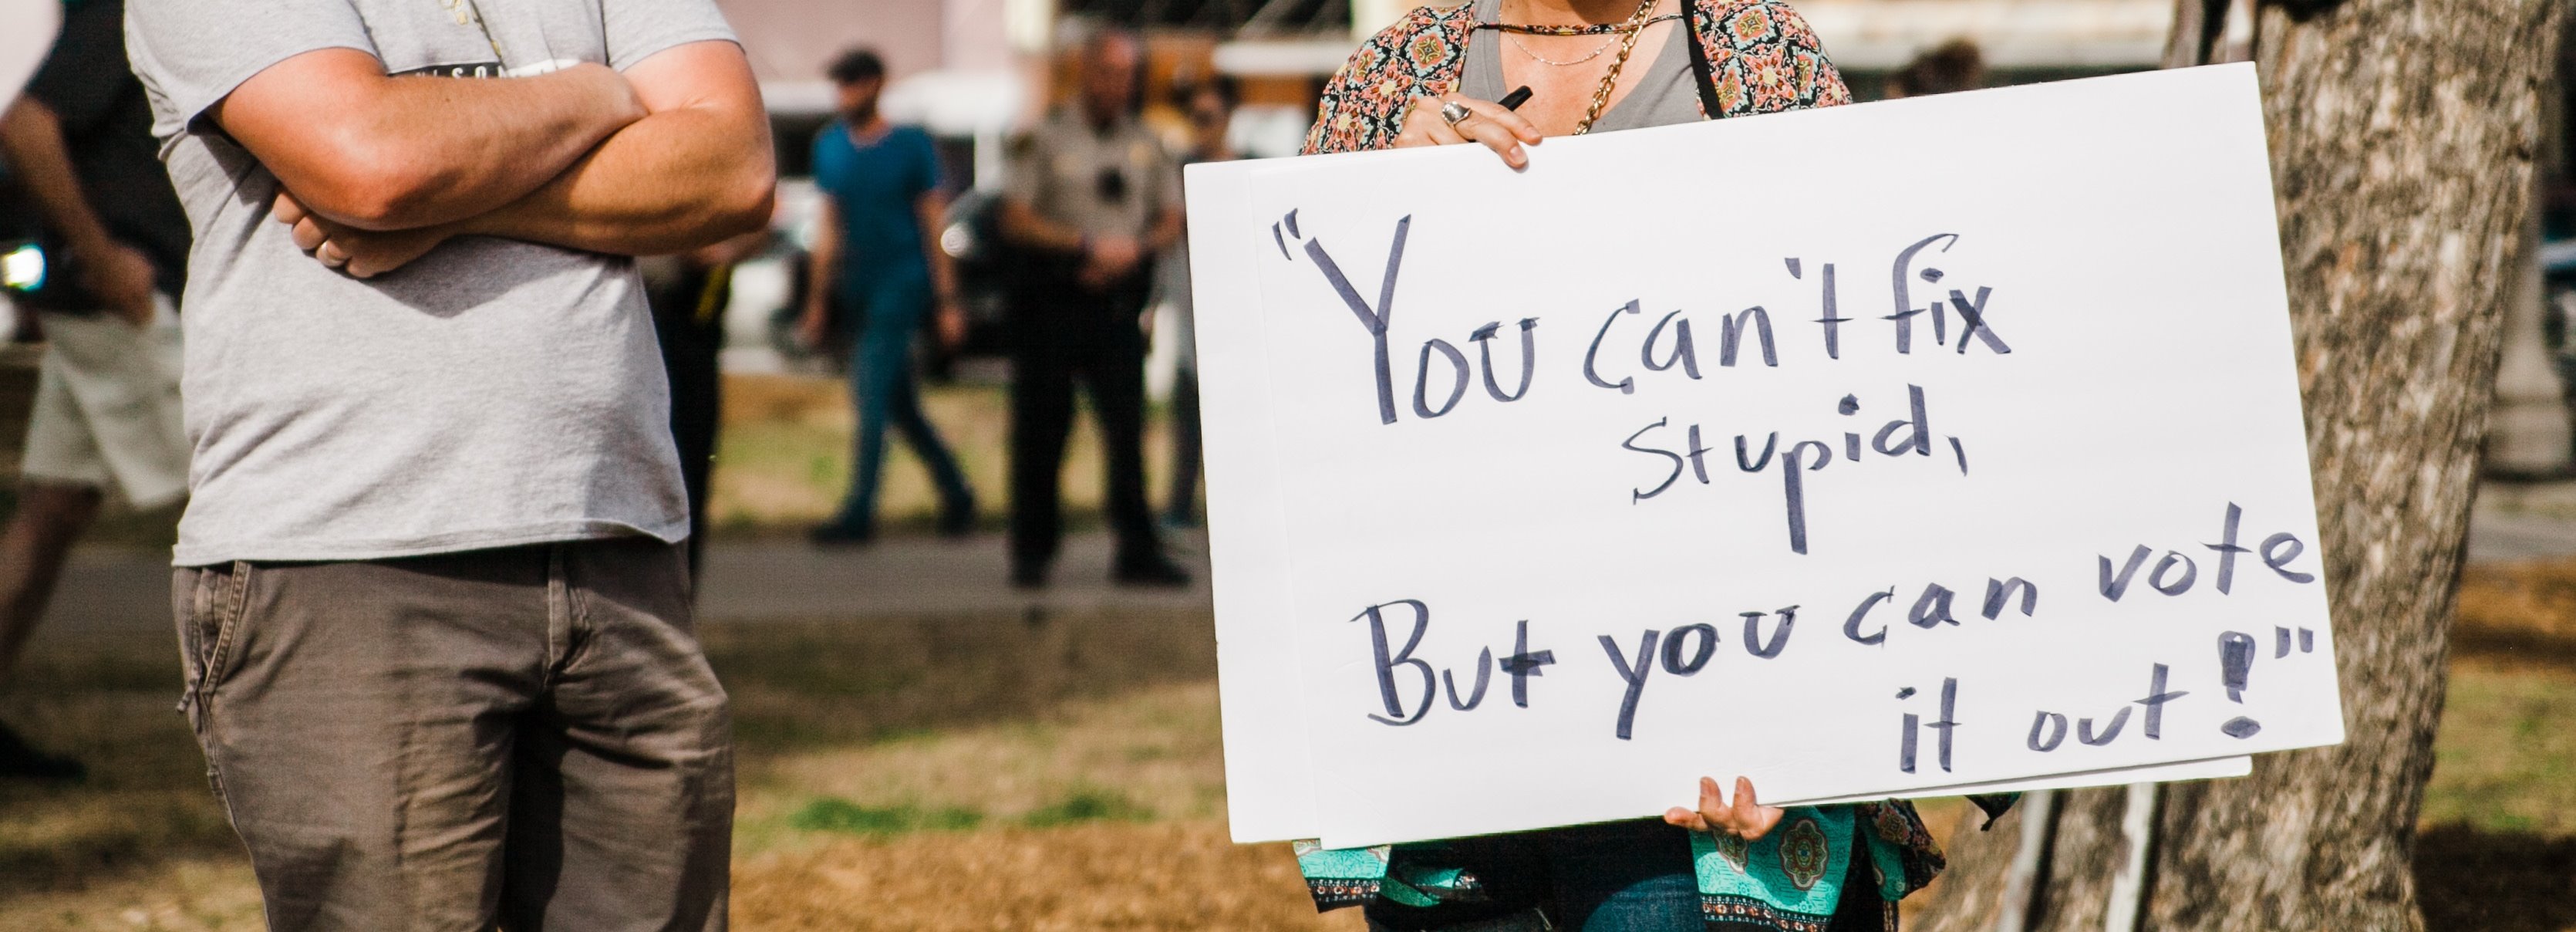 "You can't fix
Stupid,
But you can vote
it out!"